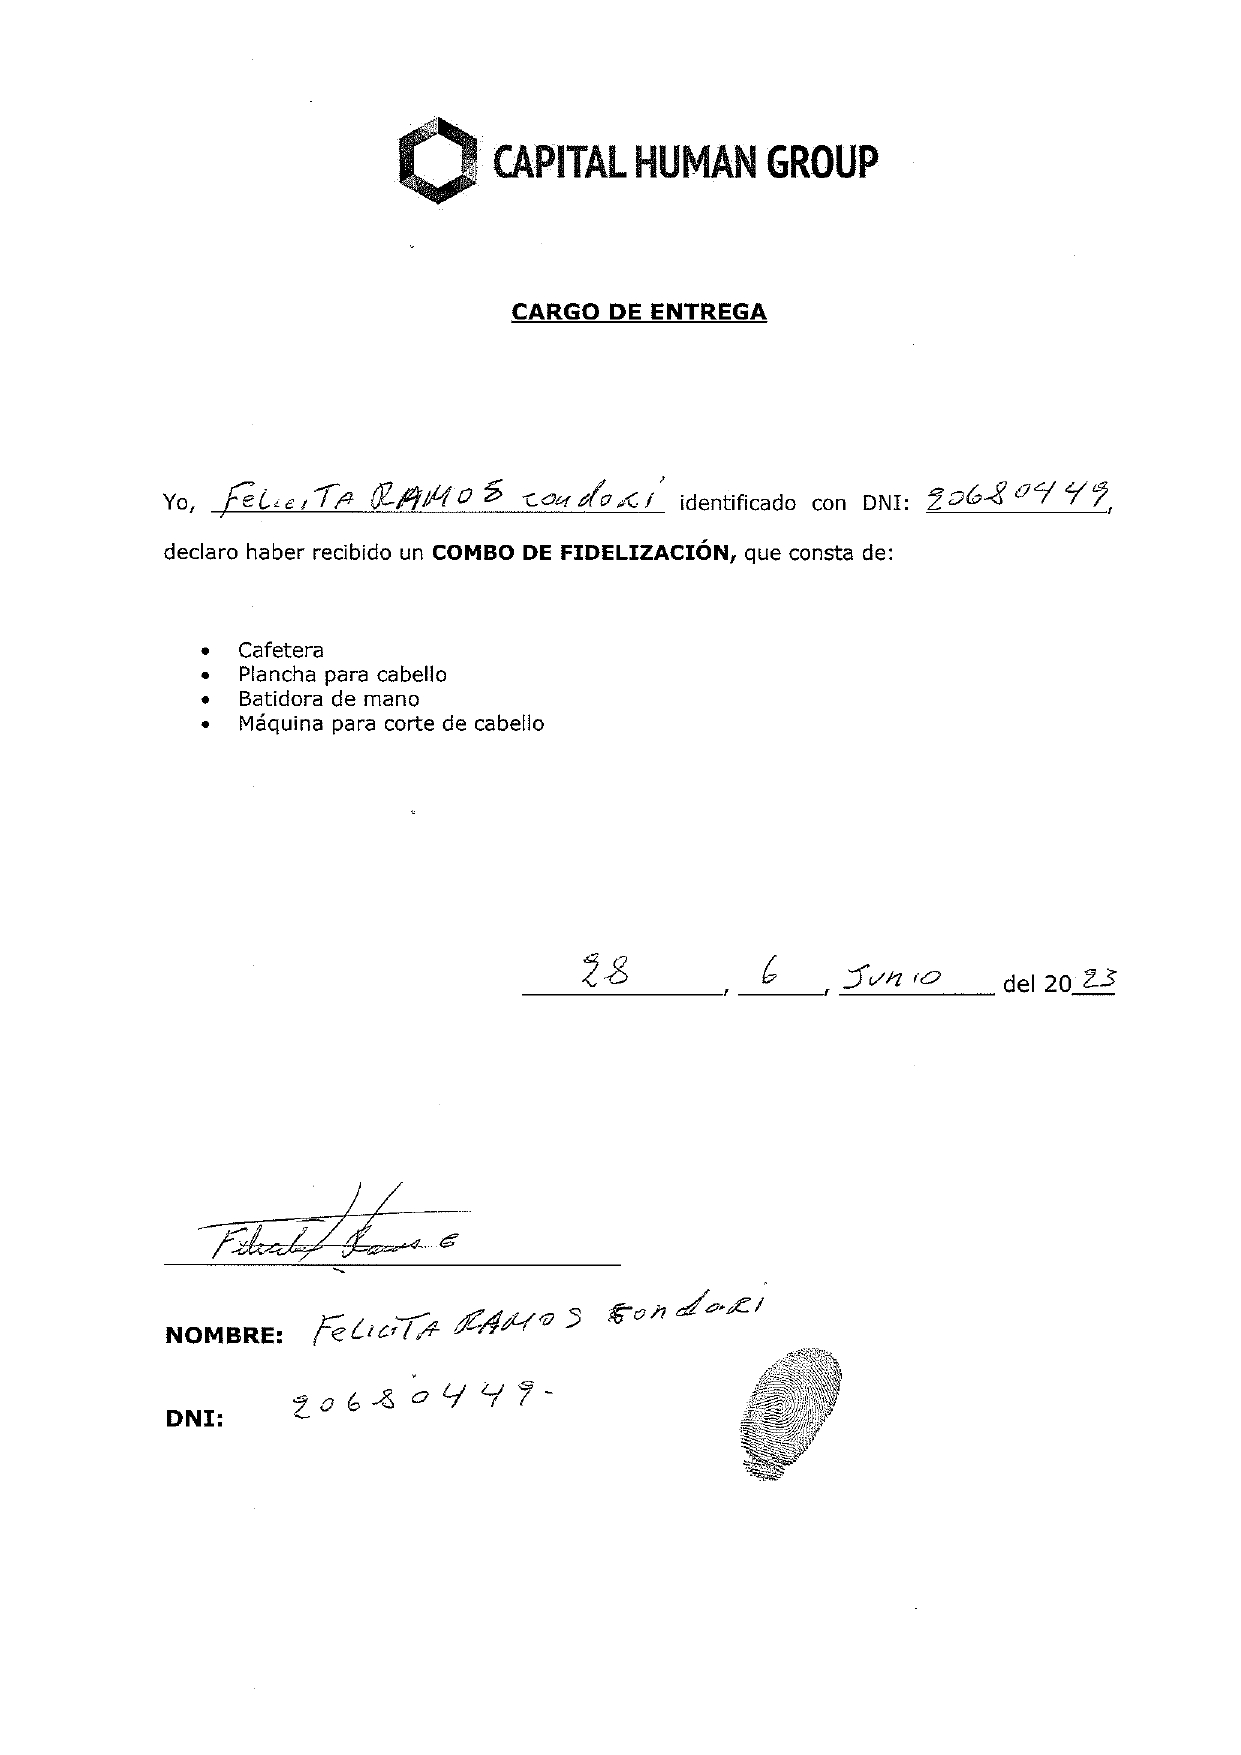 CAPITAL HUMAN GROUP
CARGO DE ENTREGA
Yo, FeLiciTA RAMOS condori identificado con DNI: 20680449,
declaro haber recibido un COMBO DE FIDELIZACIÓN, que consta de:
• Cafetera
• Plancha para cabello
• Batidora de mano
• Máquina para corte de cabello
28, 6, Junio del 2023
NOMBRE: FeLiciTA RAMOS Condori
DNI: 20680449-